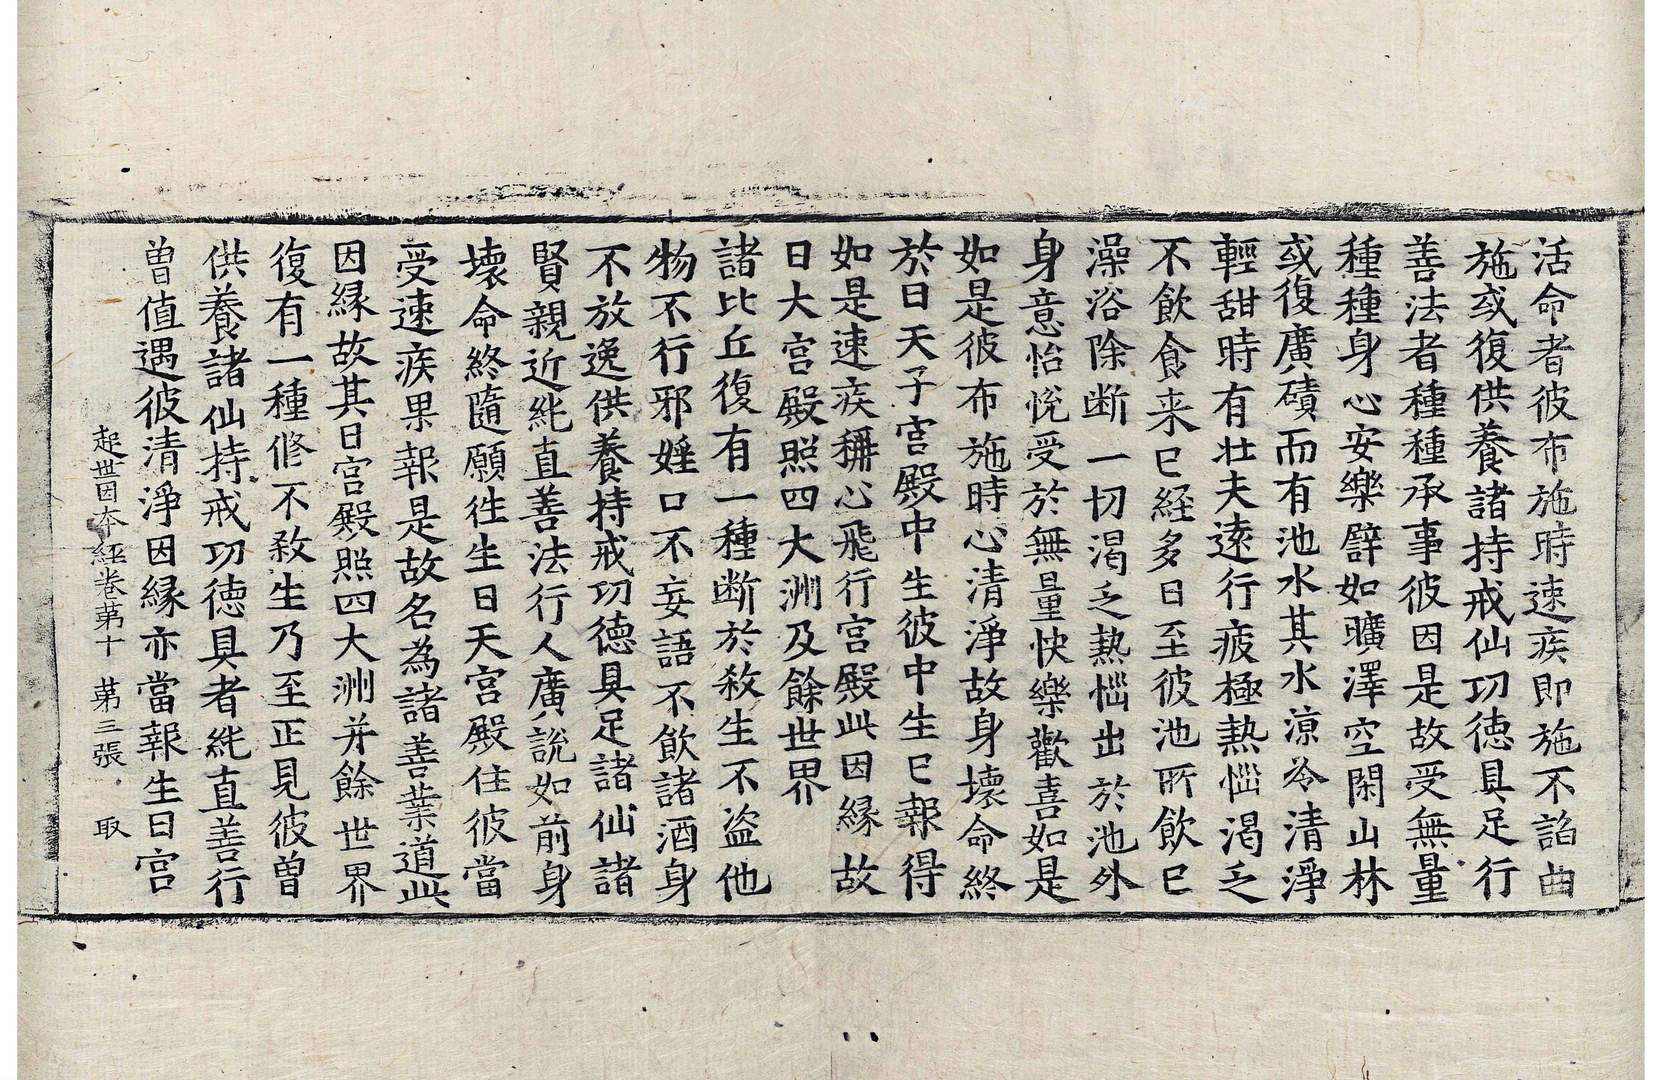 活命者彼布施時速疾即施不諂曲
施或復供養諸持戒仙功德具足行
善法者種種承事彼因是故受無量
種種身心安樂譬如曠澤空閑山林
或復廣磧而有池水其水涼冷清淨
輕甜時有壯夫遠行疲極熱惱渴乏
不飲食来已經多日至彼池所飲已
澡浴除断一切渴乏熱惱出於池外
身意怡悅受於無量快樂歡喜如是
如是彼布施時心清淨故身壞命終
於日天子宮殿中生彼中生已報得
如是速疾稱心飛行宮殿此因縁故
日大宮殿照四大洲及餘世界
諸比丘復有一種断於殺生不盜他
物不行邪婬口不妄語不飲諸酒身
不放逸供養持戒功德具足諸仙諸
賢親近純直善法行人廣說如前身
壞命終隨願往生日天宮殿住彼當
受速疾果報是故名為諸善業道此
因縁故其日宮殿照四大洲并餘世界
復有一種修不殺生乃至正見彼曽
供養諸仙持戒功德具者純直善行
曽值遇彼清淨因縁亦當報生日宮
起世因本經卷第十 第三張 取